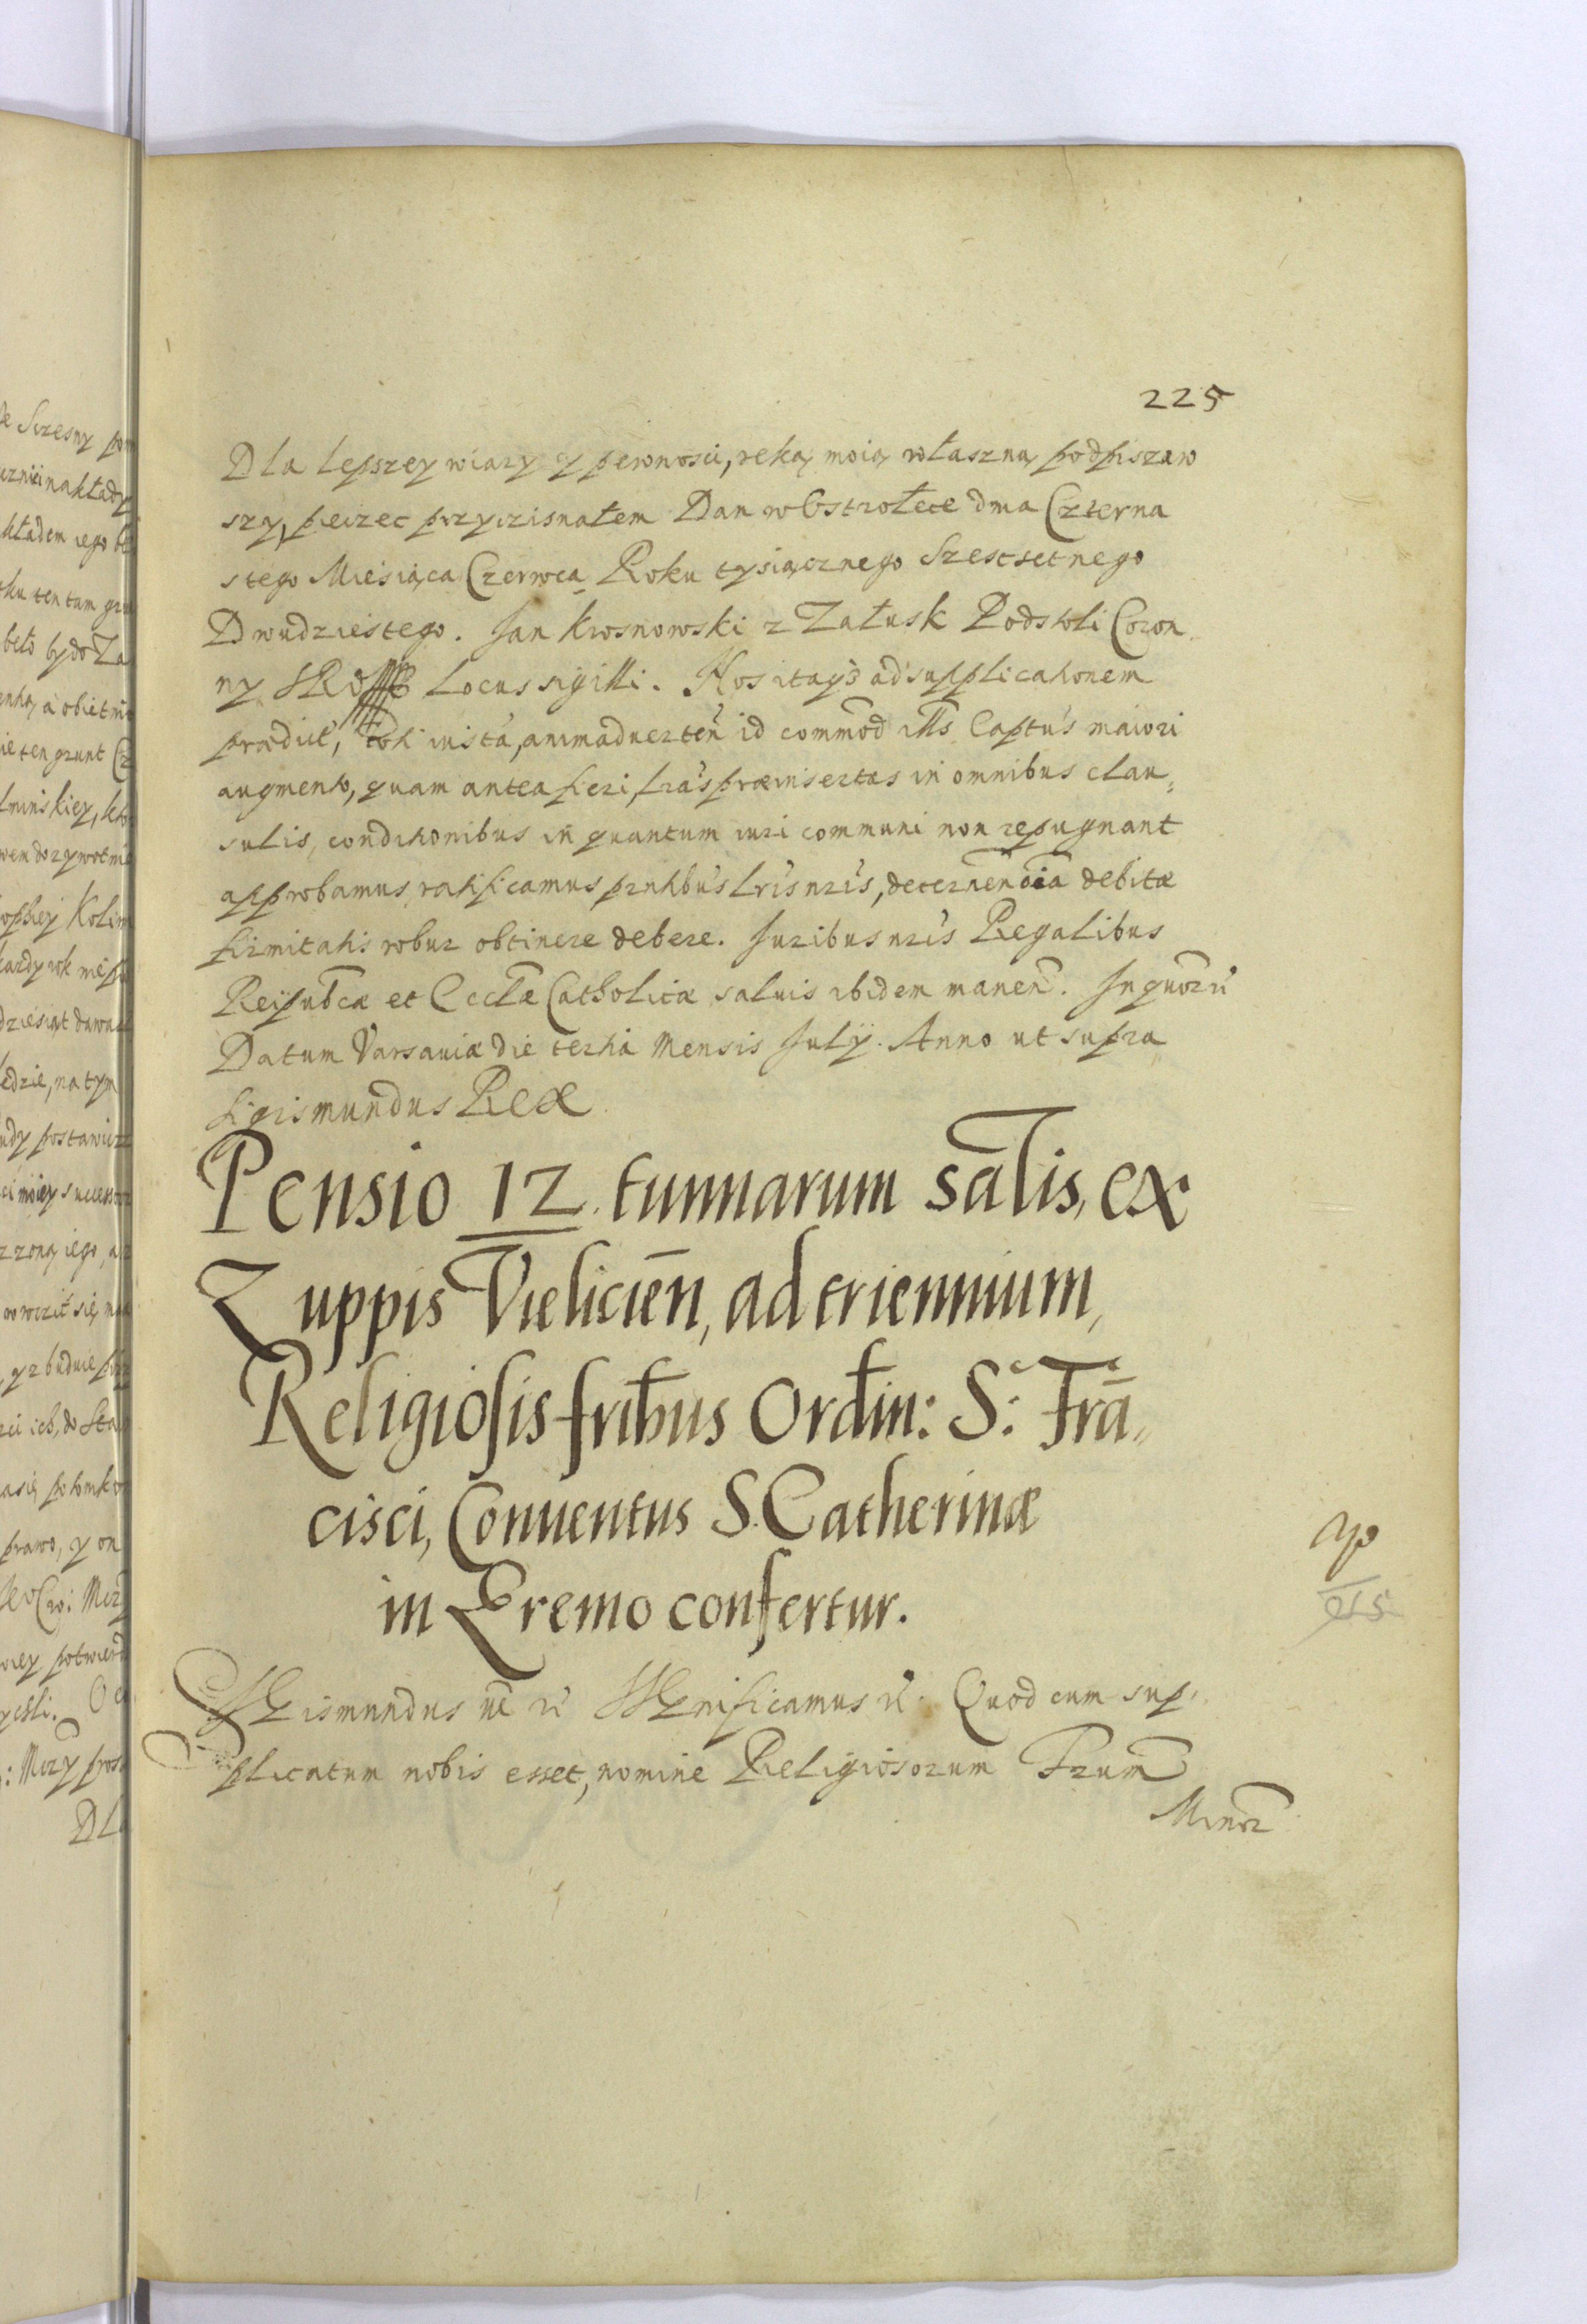 225
Dla lepszey wiary y pewnosci, ręką moią właszną podpiszaw
szy, pieczęc przyczisnałem Dan w Ostrołęce dnia Czterna
stego Miesiąca Czerwca Roku tysiącznego Szescsetnego
Dwudziestego. Jan Krosnowski z Załusk Podstoli Coron
ny Locus sigilli. Nos itaq3 ad supplicationem
prædict, toti iusta, animaduerten id commod illis Captus maiori
augmento, quam antea fieri, lras præinsertas in omnibus clau„
sulis, conditionibus in quantum iuri communi non repugnant
approbamus, ratificamus pntibus lris nris, decernen oia debitæ
firmitatis robur obtinere debere. Juribus nris Regalibus
Reipubcæ et Ecclæ Catholicæ saluis ibidem manen. In quor
Datum Varsauiæ die tertia Mensis Julij. Anno ut supra
Sigismundus Rex
Pensio 12. tunnarum salis, ex
Zuppis Vielicien, ad triennium,
Religiosis fribus Ordin: S: Fra„
cisci, Conuentus S. Catherinæ
in Eremo confertur.
Sigismundus Significamus Quod cum sup„
plicatum nobis esset, nomine Religiosorum Frum
Minor
215
e Szczesny
kładem iego
ku ten tam
ie ten grunt
edzie, na tym
zoną iego,
prawo, y on
Dla